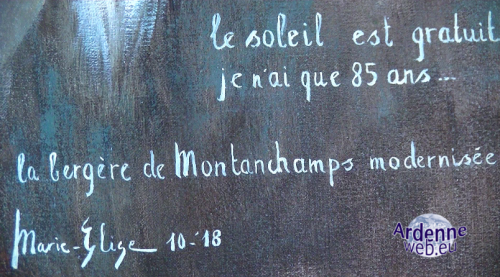 le soleil est gratuit
je n'ai que 85 ans...
la bergère de Montanchamps modernisée
Marie-Élise 10-'18
Ardenne
web.eu